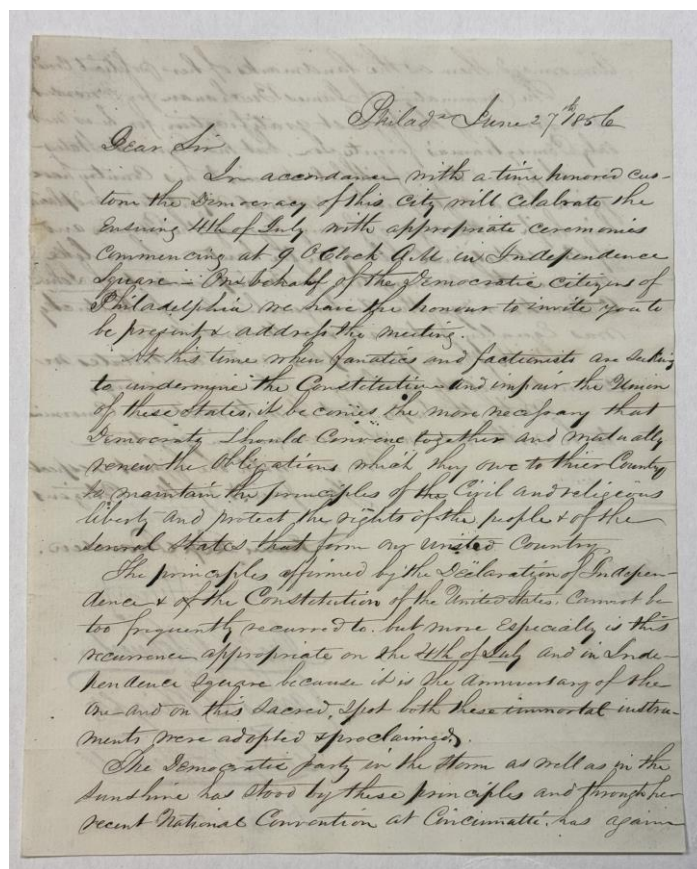 Philad^a June 27^th 1856
Dear Sir
In accordance with a time honored cus-
tom the Democracy of this City will celabrate the
Ensuing 4th of July with appropriate ceremonies
Commencing at 9 O Clock A.M. in Independence
Square — On behalf of the Democratic citizens of
Philadelphia we have the honour to invite you to
be present & address the meeting.
At this time when fanatics and factionists are seeking
to undermine the Constitution and impair the Union
of these States, it becomes the more necessary that
Democrats should Convene together and mutually
renew the Obligations which they owe to thier Country
to maintain the principles of the Civil and religious
liberty and protect the rights of the people & of the
several States that form our United Country
The principles affirmed by the Declaration of Indepen-
dence & of the Constitution of the United States. Cannot be
too frequently recurred to. but more Especially is this
recurrence appropriate on the 4th of July and in Inde-
pendence Square because it is the Anniversary of the
one and on this sacred, spot both these immortal instru-
ments were adopted & proclaimed.
The Democratic party in the storm as well as in the
sunshine has stood by these principles and through her
recent National Convention at Cincinnatti. has again